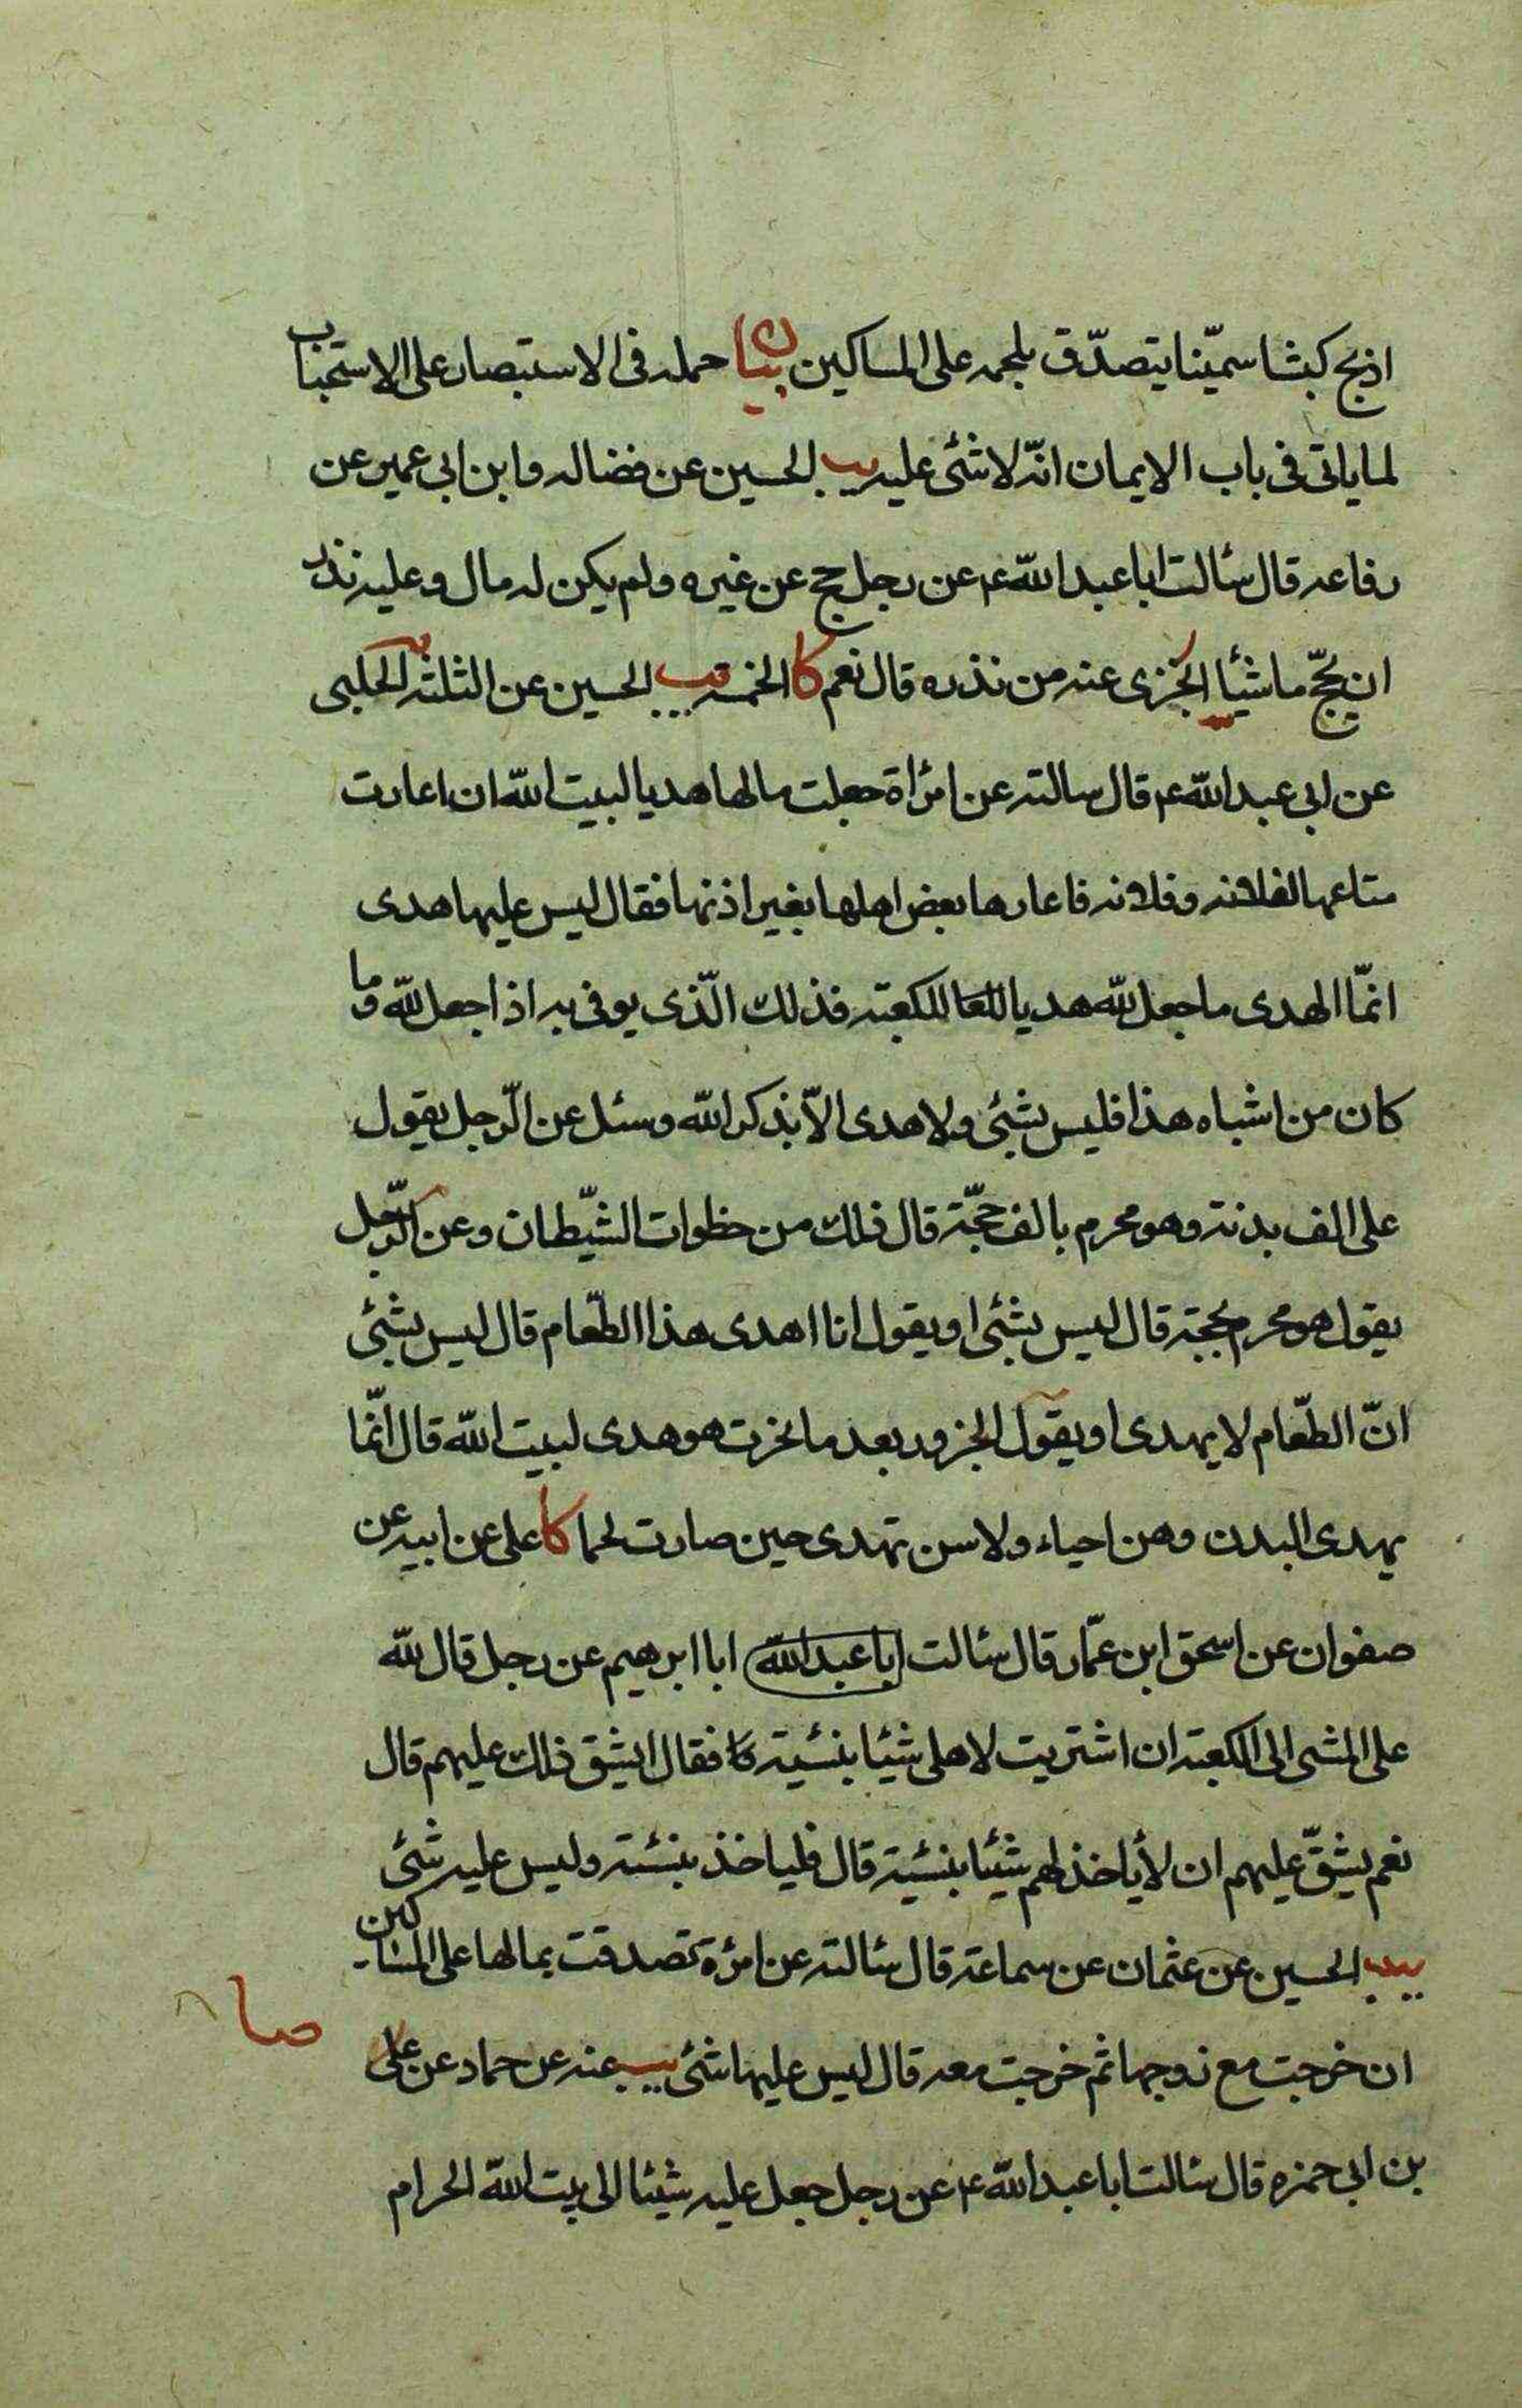 اذبح كبشا سمّينا يتصدّق بلحمه على المساكين بيان حمله فى الاستبصار على الاستحباب
لما ياتى فى باب الايمان انّه لا شئى عليه يب الحسين عن فضاله وابن ابى عمير عن
رفاعه قال سئالت ابا عبد الله ع عن رجل حج عن غيره ولم يكن له مال وعليه نذر
ان يحجّ ماشيا ايجزى عنه من نذره قال نعم كا الخمسه يب الحسين عن الثلثه الحلبى
عن ابى عبد الله ع قال سالته عن امرٔاة جعلت مالها هديا لبيت الله ان اعارت
متاعها لفلانه وفلانه فاعارها بعض اهلها بغير اذنها فقال ليس عليها هدى
انمّا الهدى ما جعل لله هديا للكعبته فذلك الّذى يوفى به اذا جعل لله وما
كان من اشباه هذا فليس بشئى ولا هدى الاّ بذكر الله وسئل عن الرّجل يقول
على الف بدنته وهو محرم بالف حجّة قال ذلك من خطوات الشّيطان وعن الرّجل
يقول هو محرم بحجة قال ليس بشئى او يقول انا اهدى هذا الطّعام قال ليس بشئى
انّ الطّعام لا يهدى او يقول الجزور بعد ما نحرت هو هدى لبيت الله قال انّما
يهدى البدن وهن احياء ولاسن تهدى حين صارت لحما كا على عن ابيه عن
صفوان عن اسحق ابن عمّار قال سئالت ابا عبد الله ابا ابرهيم عن رجل قال لله
على المشى الى الكعبته ان اشتريت لاهلى شيئا بنسيئة فقال ايشق ذلك عليهم قال
نعم يشقّ عليهم ان لا ياخذ لهم شيئا بنسيئة قال فلياخذ بنسئة وليس عليه شئى
يب الحسين عن عثمان عن سماعة قال سئالته عن امرٔة تصدقت بمالها على المساكين
ان خرجت مع زوجها ثم خرجت معه قال ليس عليها شئى يب عنه عن حماد عن على
صا
بن ابى حمزه قال سئالت ابا عبد الله ع عن رجل جعل عليه شيئا الى بيت الله الحرام